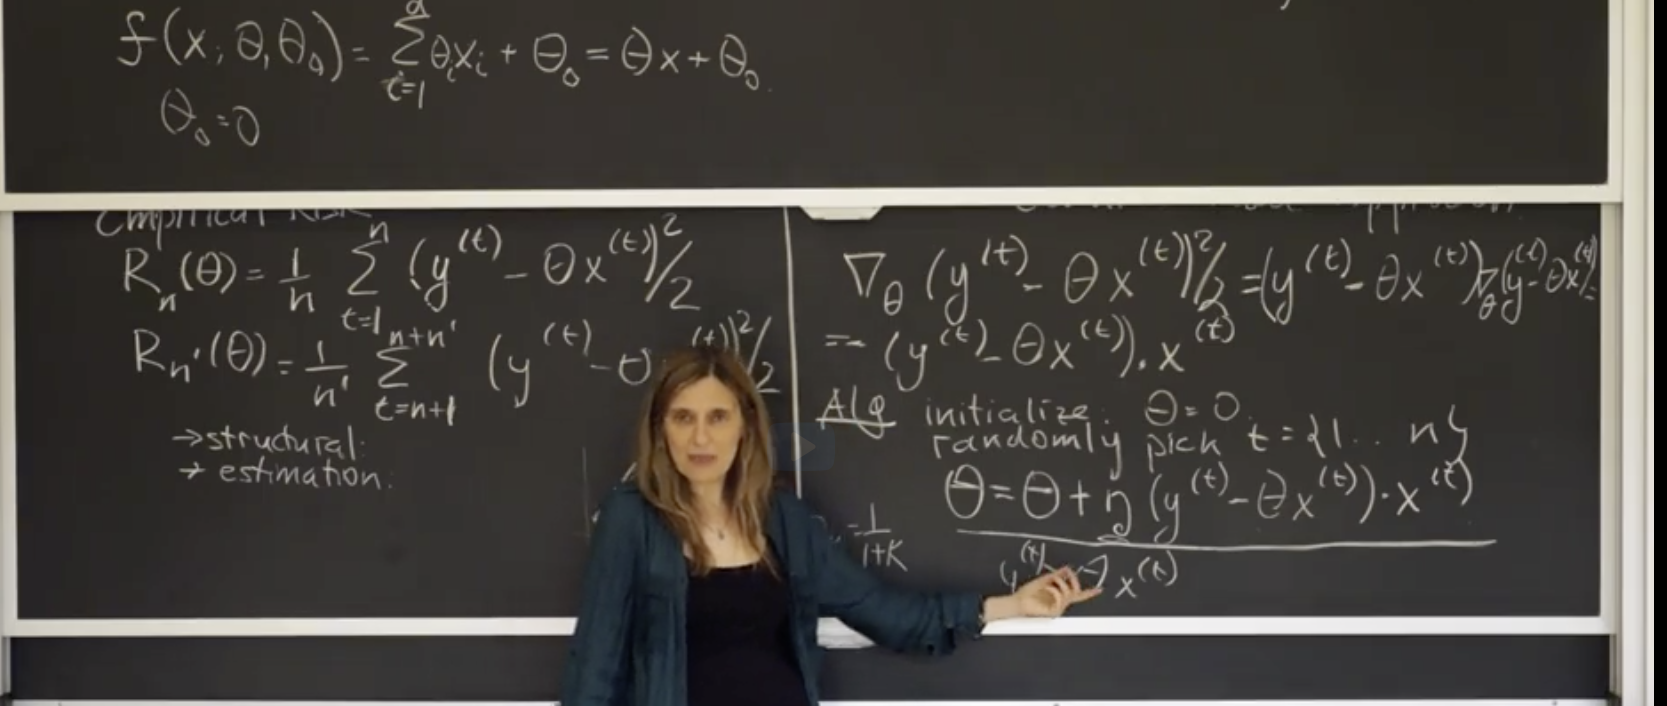 f(x, θ, θ₀) = Σ_{i=1}^{d} θᵢxᵢ + θ₀ = θx + θ₀
θ₀ = 0
Empirical Risk
Rₙ(θ) = 1/n Σ_{t=1}^{n} (y^(t) - θx^(t))²/2
Rₙ'(θ) = 1/n' Σ_{t=n+1}^{n+n'} (y^(t) - θ ^(t))²/2
→ structural.
→ estimation.
∇_θ (y^(t) - θx^(t))²/2 = (y^(t) - θx^(t)) ∇_θ (y^(t) - θx^(t)) =
= - (y^(t) - θx^(t)) · x^(t)
Alg initialize: θ = 0.
randomly pick t = {1 .. n}
θ = θ + η (y^(t) - θx^(t)) · x^(t)
= 1/1+K
x^(t)